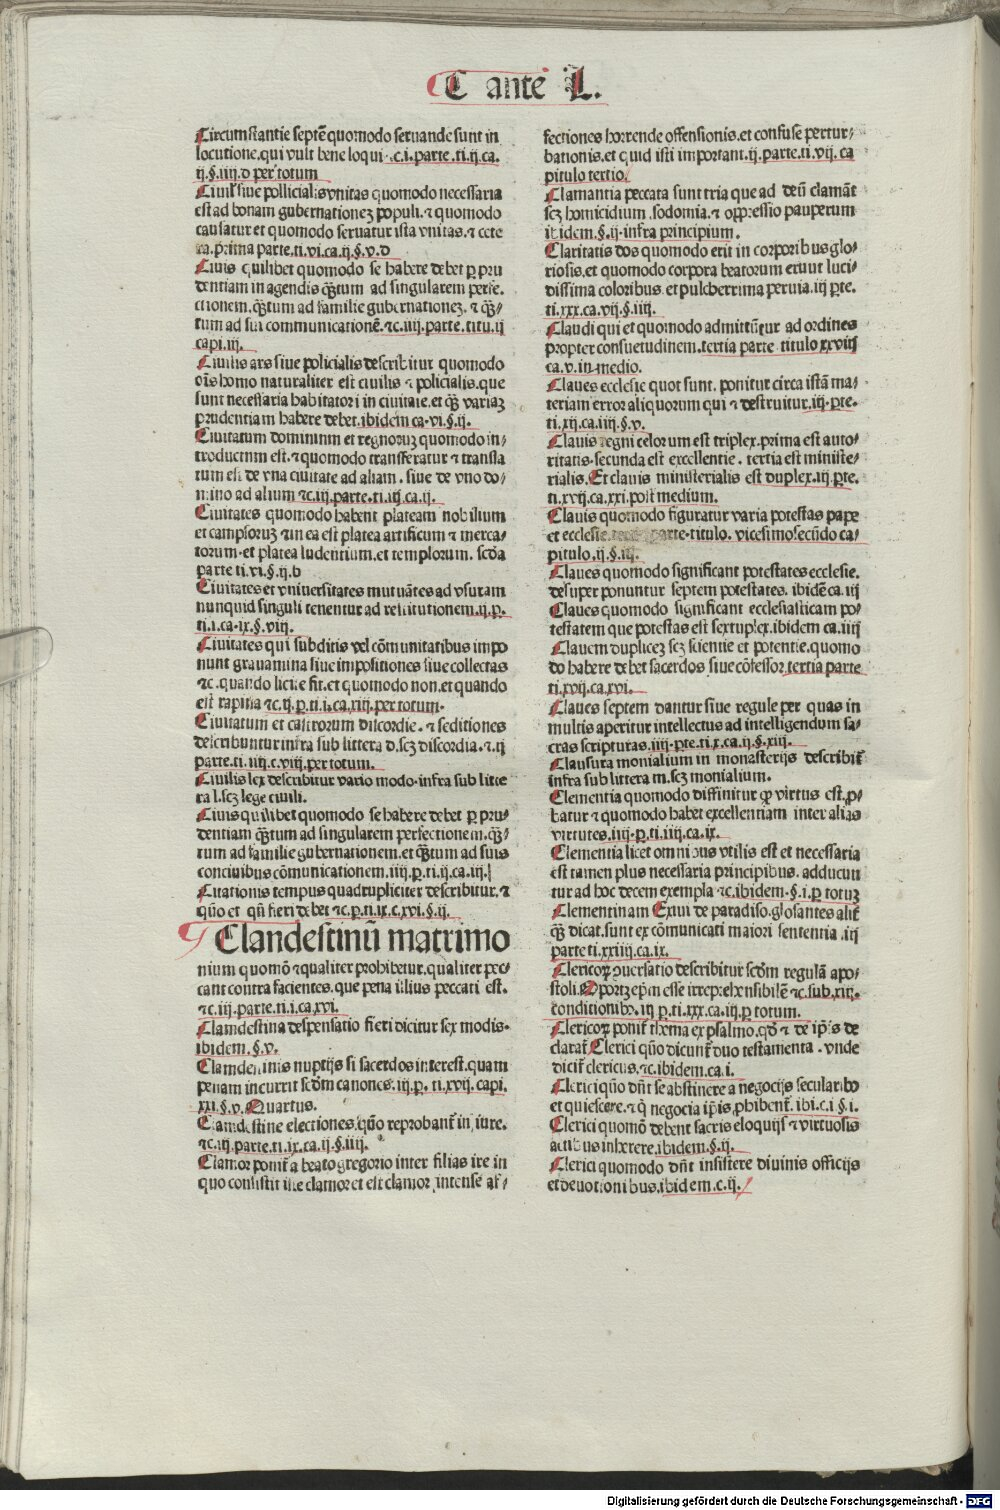 C ante L.
Circumstantie septē quomodo seruande sunt in
locutione.qui vult bene loqui .c.i.parte.ti.ij.ca.
ij.§.iiij.d per totum
Ciuil' siue pollicial's vnitas quomodo necessaria
est ad bonam gubernationeꝫ populi. ⁊ quomodo
causatur et quomodo seruatur ista vnitas. ⁊ cete
ra.prima parte.ti.vi.ca.ij.§.v.d
Ciuis quilibet quomodo se habere debet ꝑ pru
dentiam in agendis qƺtum ad singularem perfe-
ctionem.qƺtum ad familie gubernationeꝫ. ⁊ qƺ-
tum ad sui communicationē.⁊c.iiij.parte.titu.ij
capi.iij.
Ciuilis ars siue policialis describitur quomodo
oīs homo naturaliter est ciuilis ⁊ policialis.que
sunt necessaria habitatori in ciuitate.et qƺ variaꝫ
prudentiam habere debet.ibidem ca.vi.§.ij.
Ciuitatum dominium et regnoruꝫ quomodo in-
troductum est.⁊ quomodo transferatur ⁊ transla
tum est de vna ciuitate ad aliam . siue de vno do-
mino ad alium ⁊c.iij.parte.ti.iij.ca.ij.
Ciuitates quomodo habent plateam nobilium
et campsoruꝫ ⁊ in ea est platea artificum ⁊ merca-
torum.et platea ludentium.et templorum. scōa
parte ti.vi.§.ij.b
Ciuitates et vniuersitates mutuātes ad vsuram
nunquid singuli tenentur ad restitutionem.ij.p.
ti.i.ca.ix.§.viij.
Ciuitates qui subditis vel cōmunitatibus impo
nunt grauamina siue impositiones siue collectas
⁊c.quando licite fit.et quomodo non.et quando
est rapina ⁊c.ij.p.ti.i.ca.xiij.per totum.
Ciuitatum et castrorum discordie . ⁊ seditiones
describuntur infra sub littera d.scꝫ discordia.⁊.ij
parte.ti.iiij.c.viij.per totum.
Ciuilis lex describitur vario modo.infra sub litte
ra l.scꝫ lege ciuili.
Ciuis quilibet quomodo se habere debet ꝑ pru-
dentiam qƺtum ad singularem perfectionem.qƺ-
tum ad familie gubernationem.et qƺtum ad suis
conciuibus cōmunicationem.iiij.p.ti.ij.ca.iij.
Citationis tempus quadrupliciter describitur.⁊
quō et qn̄ fieri debet ⁊c.p.ti.ix.c.xvi.§.ij.
Clandestinū matrimo
nium quomō ⁊ qualiter prohibetur.qualiter pec-
cant contra facientes.que pena illius peccati est.
⁊c.iij.parte.ti.i.ca.xvi.
Clamdestina despensatio fieri dicitur sex modis.
ibidem.§.v.
Clamdestinis nuptijs si sacerdos interest.quam
penam incurrit scōm canones.iij.p. ti.xvij. capi.
xxi.§.v.Quartus.
Clamdestine electiones.quō reprobant̄ in iure.
⁊c.iij.parte.ti.ix.ca.ij.§.iiij.
Clamor ponit̄ a beato gregorio inter filias ire in
quo consistit iste clamor et est clamor intense af-
fectiones horrende offensionis.et confuse pertur-
bationis.et quid isti important.ij.parte.ti.vij.ca
pitulo tertio.
Clamantia peccata sunt tria que ad deū clamāt
scꝫ homicidium .sodomia.⁊ oppressio pauperum
ibidem.§.ij.infra principium.
Claritatis dos quomodo erit in corporibus glo-
riosis.et quomodo corpora beatorum erunt luci-
dissima coloribus et pulcherrima peruia.iij p̄te.
ti.xxx.ca.vij.§.iiij.
Claudi qui et quomodo admittūtur ad ordines
propter consuetudinem.tertia parte titulo xxviij
ca.v.in medio.
Claues ecclesie quot sunt. ponitur circa istā ma-
teriam error aliquorum qui ⁊ destruitur.iij.p̄te.
ti.xij.ca.iiij.§.v.
Clauis regni celorum est triplex.prima est auto-
ritatis.secunda est excellentie . tertia est ministe-
rialis.Et clauis ministerialis est duplex.iij.p̄te.
ti.xvij.ca.xxi.post medium.
Clauis quomodo figuratur varia potestas pape
et ecclesie. parte.titulo. vicesimosecūdo ca-
pitulo.ij.§.iij.
Claues quomodo significant potestates ecclesie.
desuper ponuntur septem potestates. ibidē ca.iij
Claues quomodo significant ecclesiasticam po-
testatem que potestas est sextuplex.ibidem ca.iiij
Clauem duplicēꝫ scꝫ scientie et potentie.quomo
do habere debet sacerdos siue cōfessor.tertia parte
ti.xvij.ca.xvi.
Claues septem dantur siue regule per quas in
multis aperitur intellectus ad intelligendum sa-
cras scripturas.iiij.p̄te.ti.x.ca.ij.§.xiij.
Clausura monialium in monasterijs describit̄
infra sub littera m.scꝫ monialium.
Clementia quomodo diffinitur qꝫ virtus est.ꝓ-
batur ⁊ quomodo habet excellentiam inter alias
virtutes.iiij.p.ti.iiij.ca.ix.
Clementia licet omnibus vtilis est et necessaria
est tamen plus necessaria principibus. adducun
tur ad hoc decem exempla ⁊c.ibidem.§.i.ꝑ totuꝫ
Clementinam Exiui de paradiso.glosantes alit̄
qƺ dicat.sunt excōmunicati maiori sententia .iij
parte ti.xxiiij.ca.ix.
Clericoꝝ ꝯuersatio describitur scōm regulā apo-
stoli.Oportꝫ ep̄m esse irreprehensibilē ⁊c.sub.xiij.
conditionibꝰ. iij p.ti.xxx.ca.iij.ꝑ totum.
Clericoꝝ ponit̄ thema ex psalmo.qđ ⁊ de ip̄is de
clarat̄ Clerici quō dicunt̄ duo testamenta . vnde
dicit̄ clericus.⁊c.ibidem.ca.i.
Clerici quō dn̄t se abstinere a negocijs secularibꝰ
et quiescere.⁊ q̄ negocia ip̄is ꝓhibent̄. ibi.c.i §.i.
Clerici quomō debent sacris eloquijs ⁊ virtuosis
actibus inherere.ibidem.§.ij.
Clerici quomodo dn̄t insistere diuinis officijs
et deuotionibus.ibidem.c.ij.
Digitalisierung gefördert durch die Deutsche Forschungsgemeinschaft - DFG